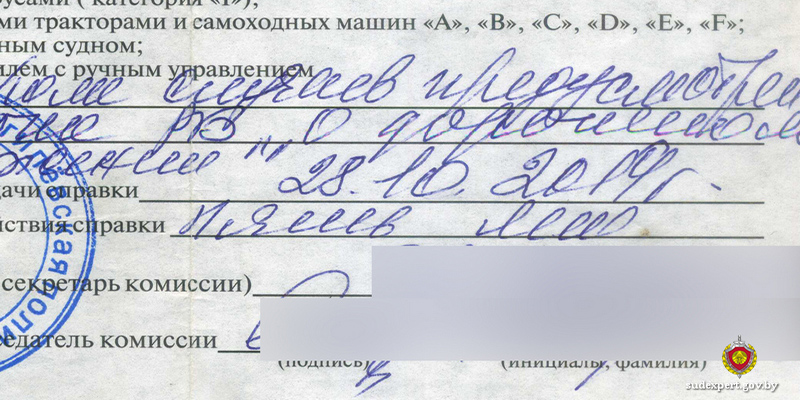 русами ( категория «I»);
ми тракторами и самоходных машин «A», «B», «C», «D», «E», «F»;
ным судном;
илем с ручным управлением
роме случаев предусмотрен
РБ „О дорожном
движении"
дачи справки 28.10.2014г.
йствия справки пять лет
секретарь комиссии)
едатель комиссии
(подпись) (инициалы, фамилия)
гилевская поли
sudexpert.gov.by